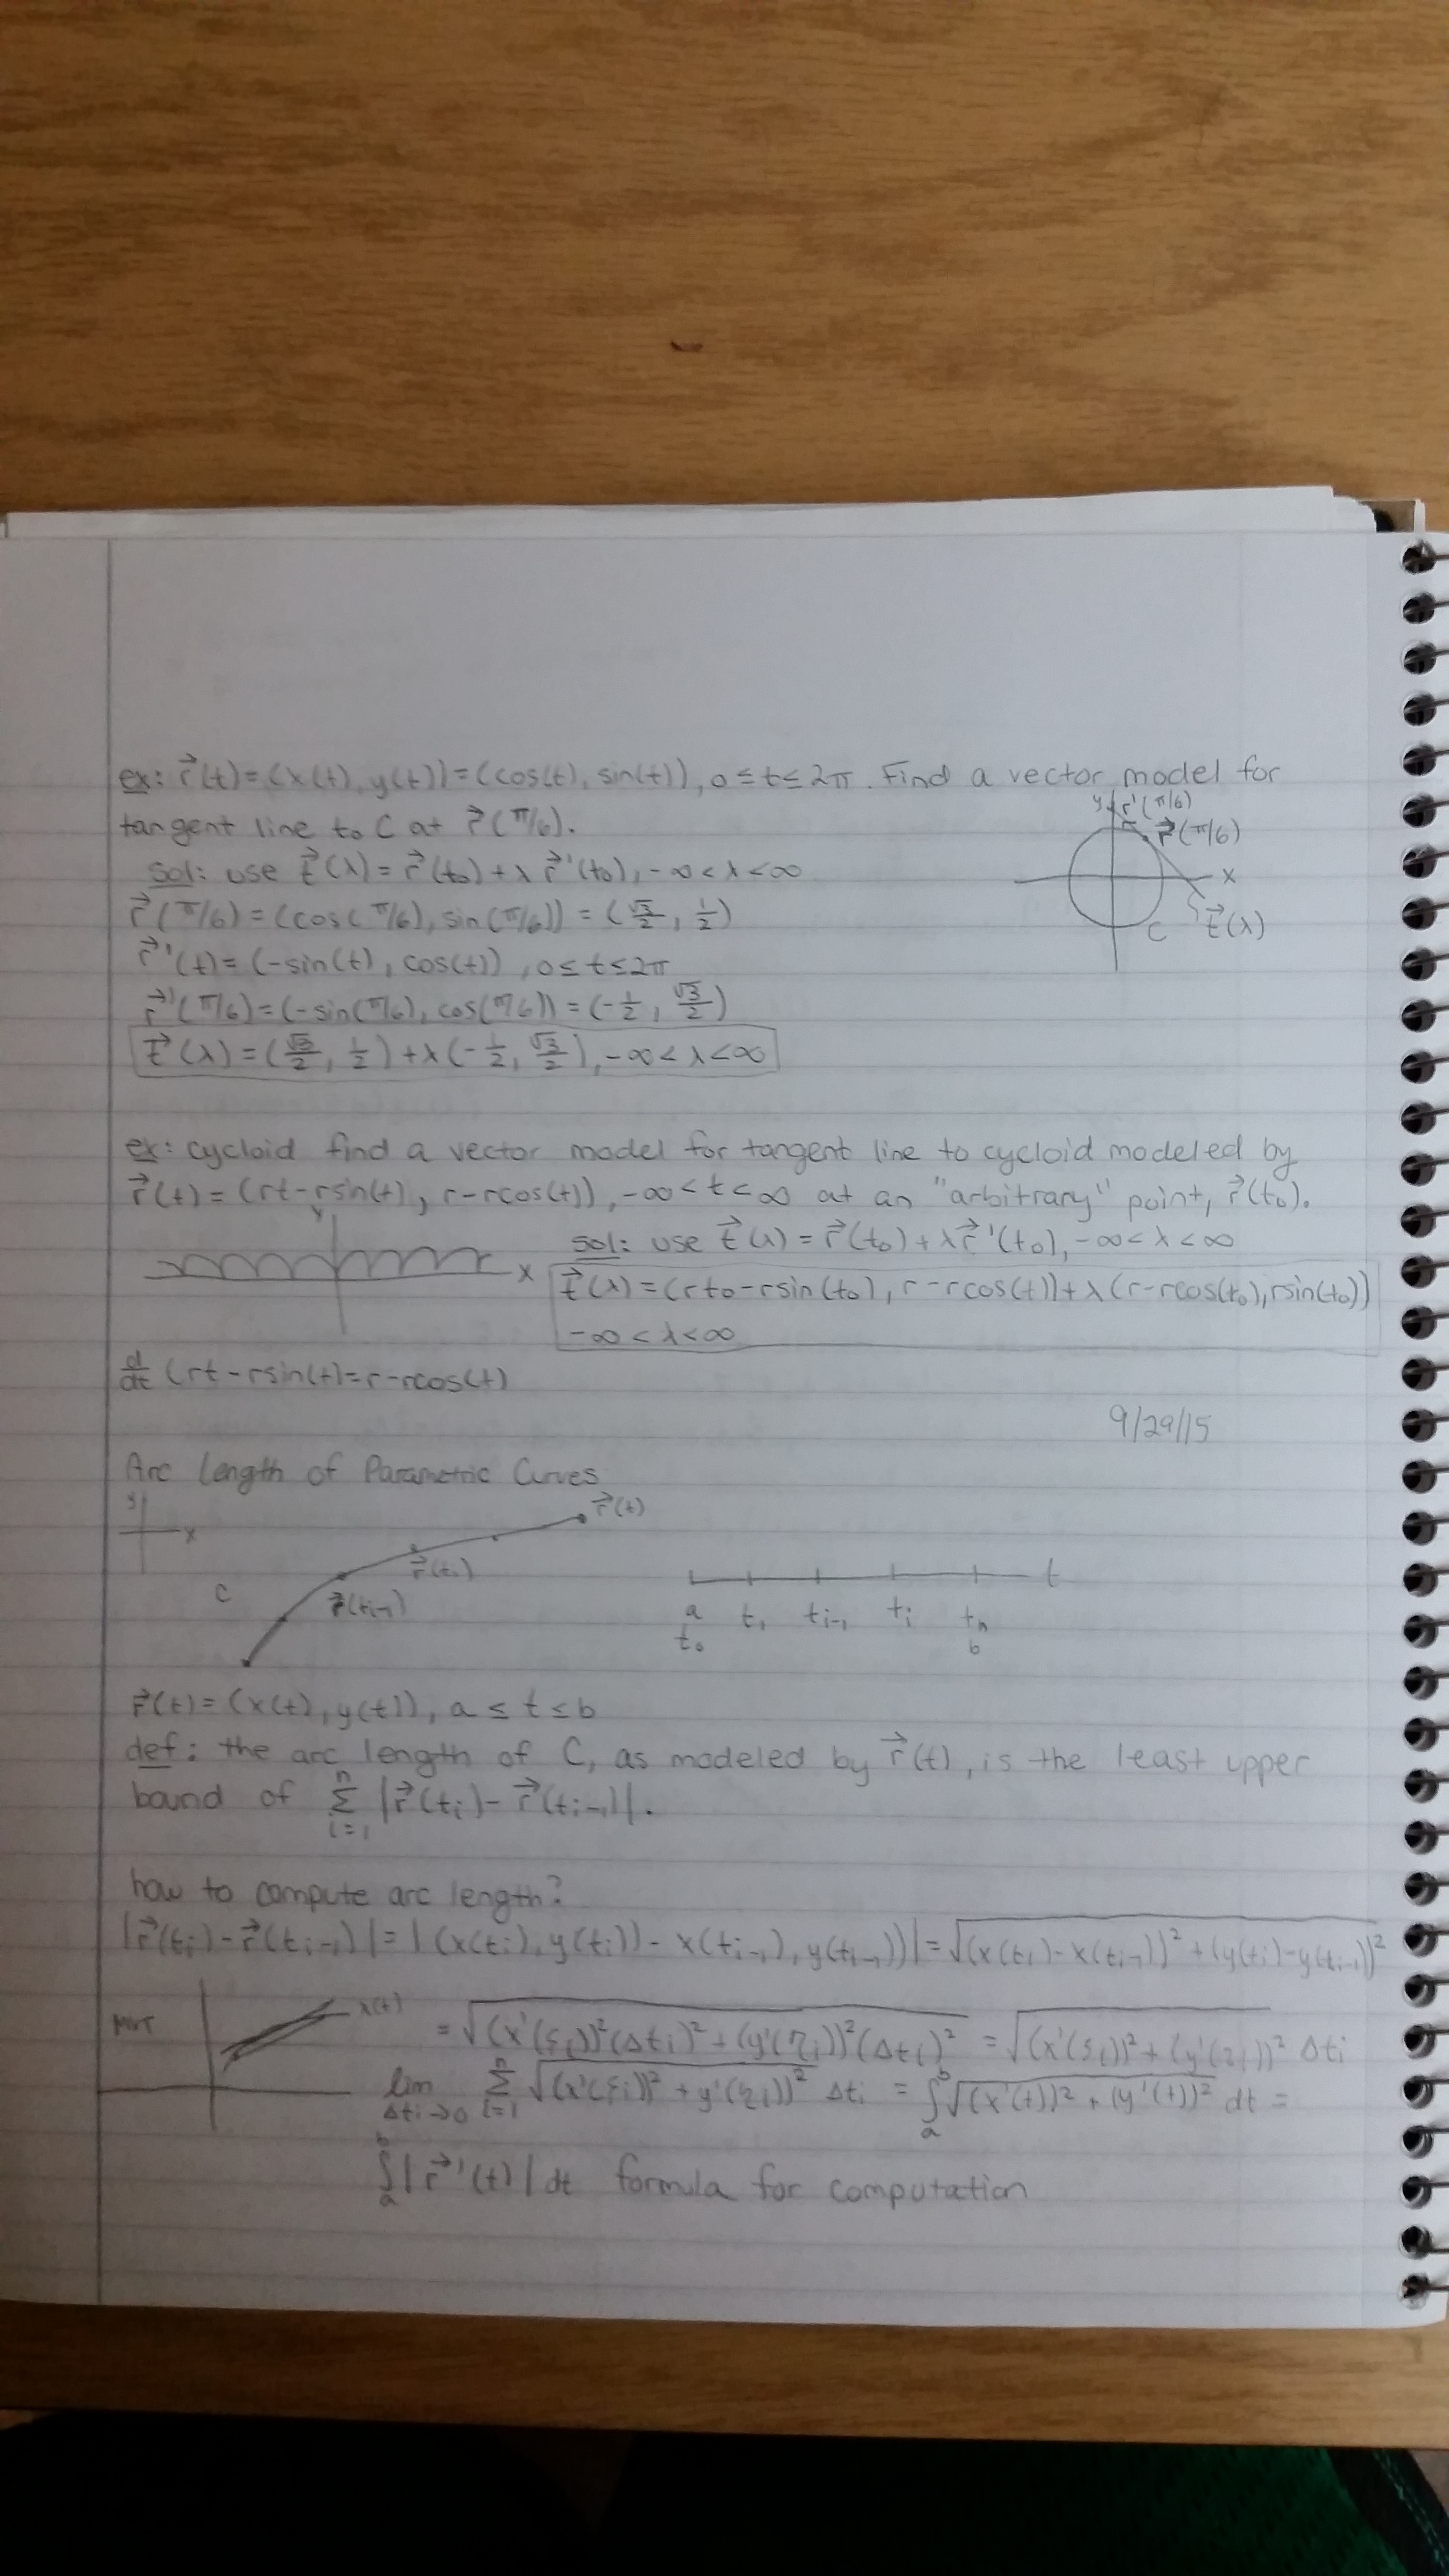 ex: r⃗(t)=(x(t),y(t))=(cos(t), sin(t)), 0≤t≤2π. Find a vector model for
tangent line to C at r⃗(π/6).
y r⃗'(π/6)
r⃗(π/6)
x
C t⃗(λ)
sol: use t⃗(λ)=r⃗(t₀)+λr⃗'(t₀), -∞<λ<∞
r⃗(π/6)=(cos(π/6), sin(π/6))=(√3/2, 1/2)
r⃗'(t)=(-sin(t), cos(t)), 0≤t≤2π
r⃗'(π/6)=(-sin(π/6), cos(π/6))=(-1/2, √3/2)
t⃗(λ)=(√3/2, 1/2)+λ(-1/2, √3/2), -∞<λ<∞
ex: cycloid find a vector model for tangent line to cycloid modeled by
r⃗(t)=(rt-rsin(t), r-rcos(t)), -∞<t<∞ at an "arbitrary" point, r⃗(t₀).
y
x
sol: use t⃗(λ)=r⃗(t₀)+λr⃗'(t₀), -∞<λ<∞
t⃗(λ)=(rt₀-rsin(t₀), r-rcos(t))+λ(r-rcos(t₀), rsin(t₀))
-∞<λ<∞
d/dt (rt-rsin(t)=r-rcos(t)
9/29/15
Arc length of Parametric Curves
y
x
r⃗(t)
r⃗(tᵢ)
C r⃗(tᵢ₋₁)
t
a t₁ tᵢ₋₁ tᵢ tₙ
t₀ b
r⃗(t)=(x(t), y(t)), a≤t≤b
def: the arc length of C, as modeled by r⃗(t), is the least upper
bound of Σᵢ₌₁ⁿ |r⃗(tᵢ)-r⃗(tᵢ₋₁)|.
how to compute arc length?
|r⃗(tᵢ)-r⃗(tᵢ₋₁)|=|(x(tᵢ), y(tᵢ))-x(tᵢ₋₁), y(tᵢ₋₁))|=√(x(tᵢ)-x(tᵢ₋₁))²+(y(tᵢ)-y(tᵢ₋₁))²
MVT x(t)
=√(x'(ξᵢ))²(Δtᵢ)²+(y'(ηᵢ))²(Δtᵢ)² =√(x'(ξᵢ))²+(y'(ηᵢ))² Δtᵢ
lim Δtᵢ→0 Σᵢ₌₁ⁿ √(x'(ξᵢ))²+y'(ηᵢ))² Δtᵢ = ∫ₐᵇ√(x'(t))²+(y'(t))² dt =
∫ₐᵇ|r⃗'(t)|dt formula for computation